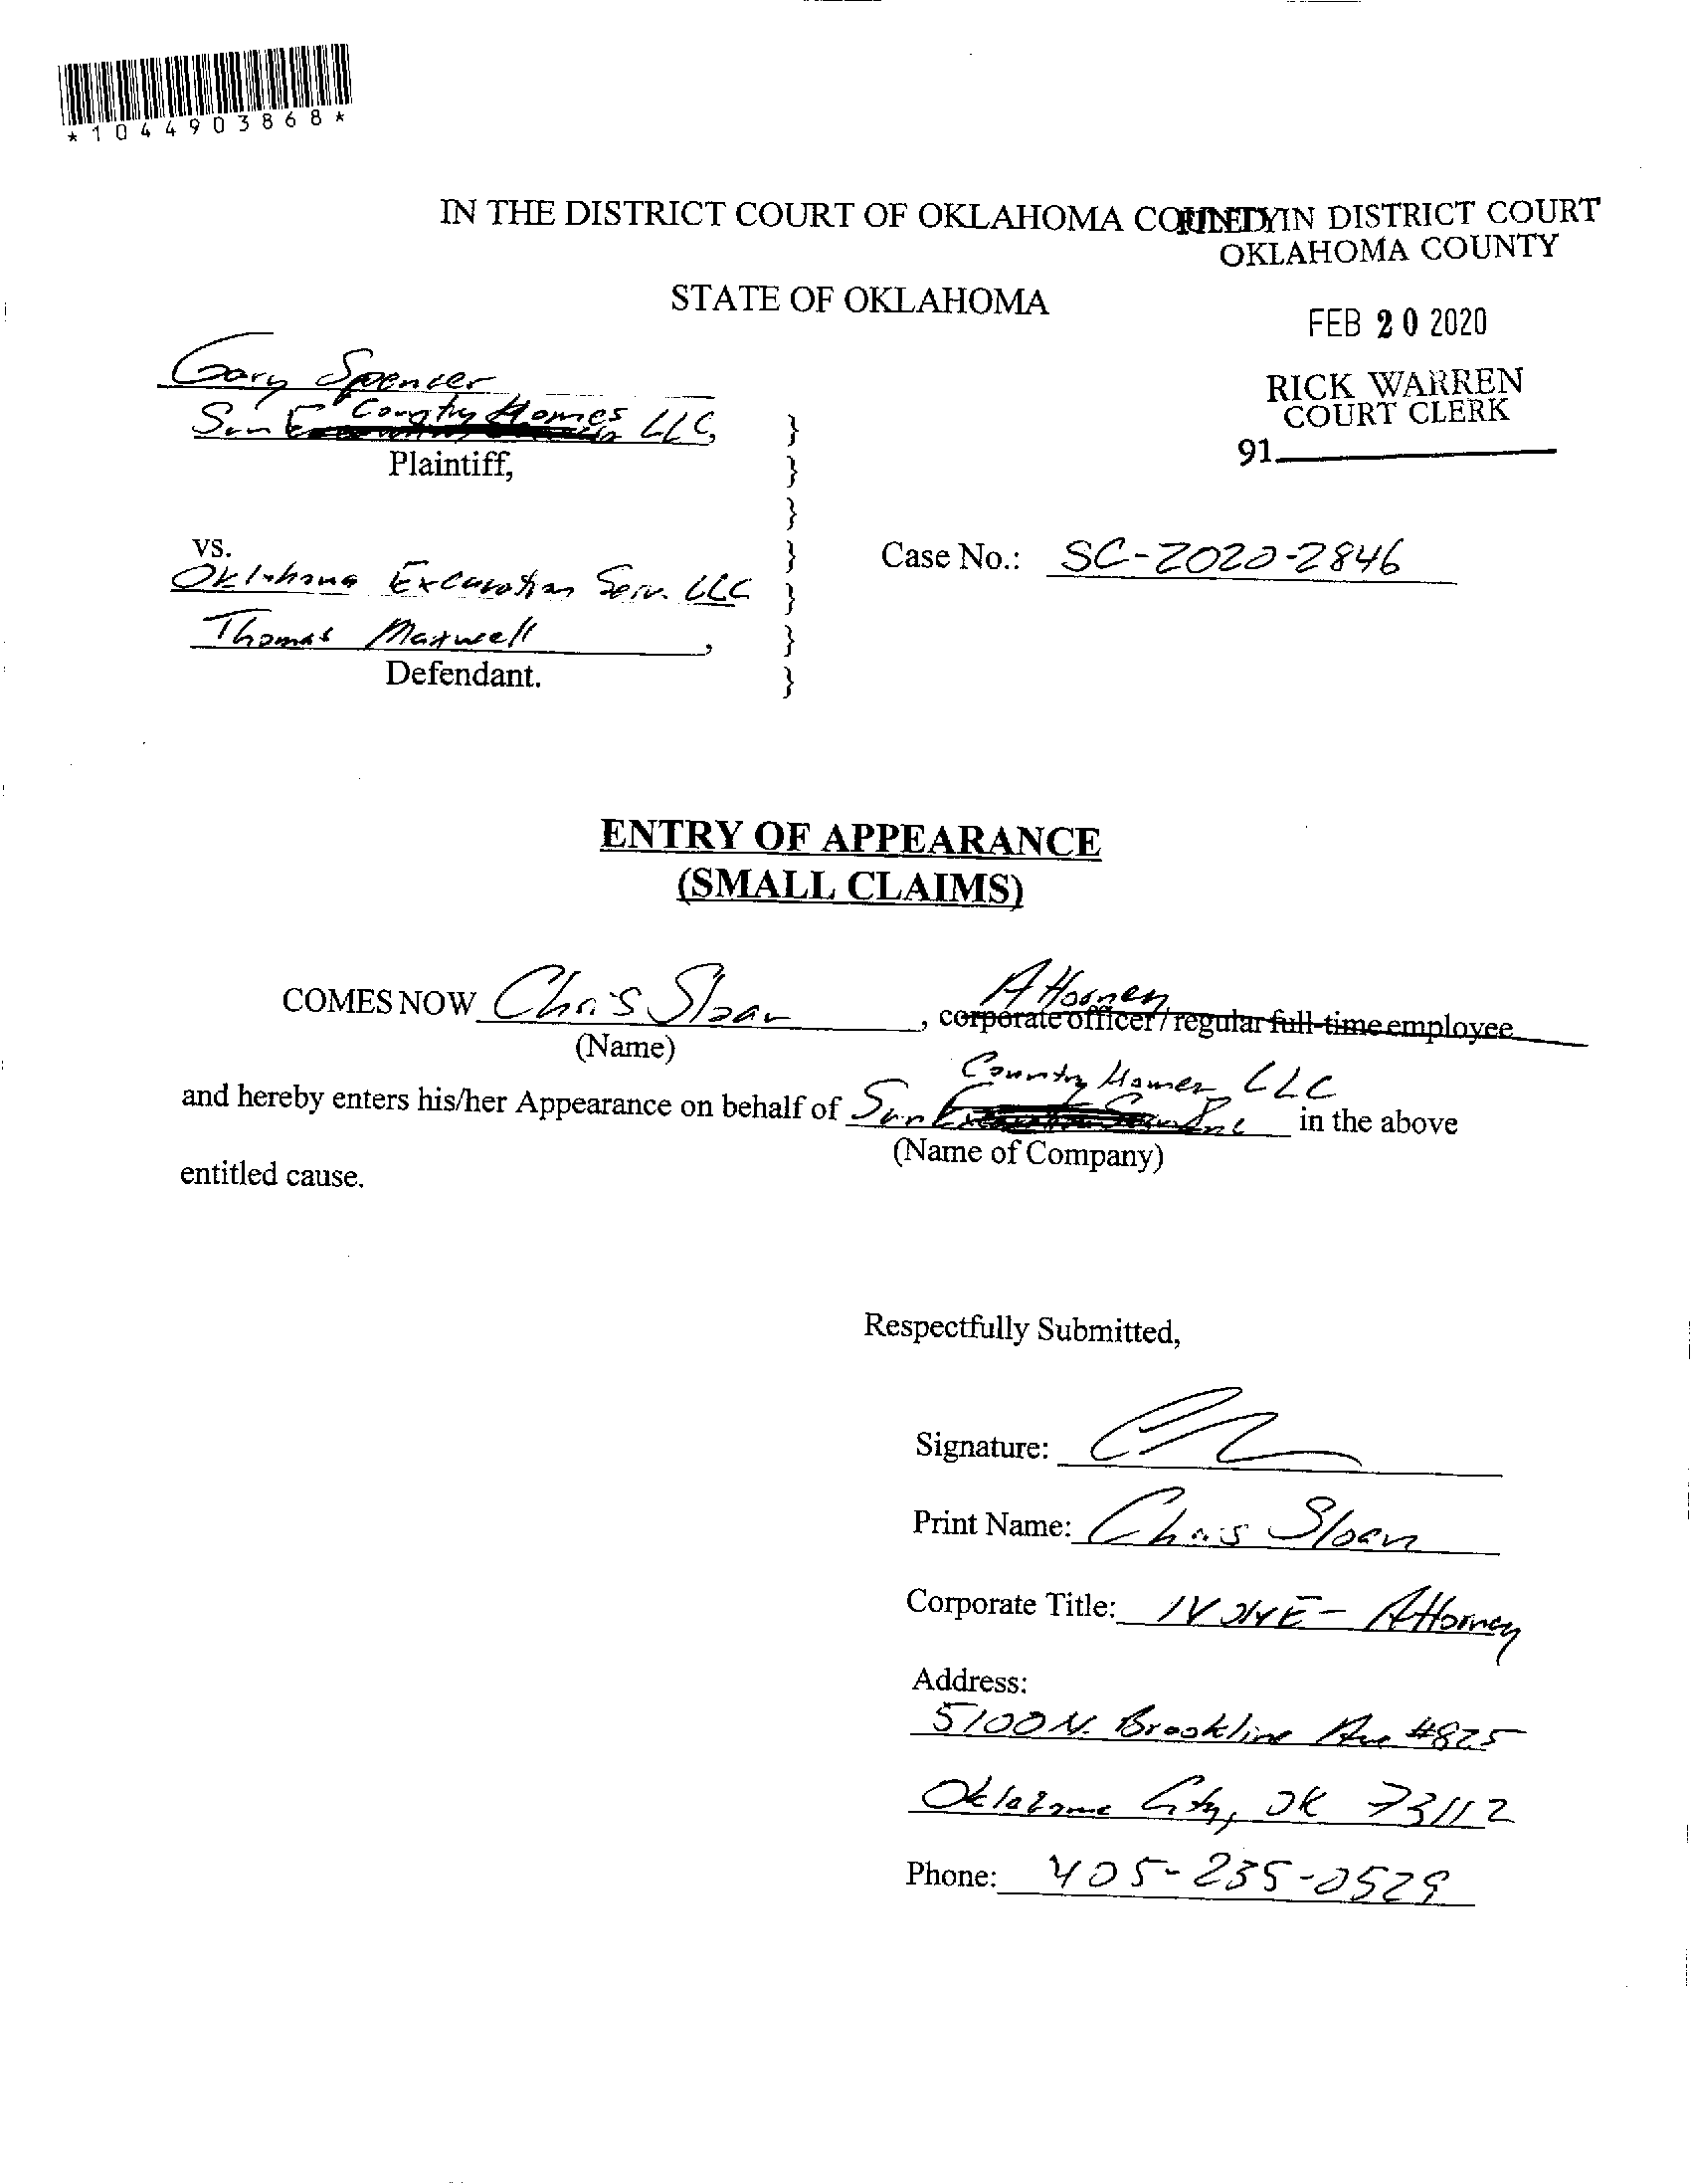 *1044903868*
IN THE DISTRICT COURT OF OKLAHOMA COUNTY
FILED IN DISTRICT COURT
OKLAHOMA COUNTY
STATE OF OKLAHOMA
FEB 20 2020
RICK WARREN
COURT CLERK
91
Gary Spencer
Sun Country Homes LLC,
Plaintiff,
vs.
Case No.: SC-2020-2846
Oklahoma Excavation Serv. LLC
Thomas Maxwell,
Defendant.
}
}
}
}
}
}
}
ENTRY OF APPEARANCE
(SMALL CLAIMS)
Attorney
COMES NOW Chris Sloan, corporate officer / regular full-time employee
(Name)
Country Homes LLC
and hereby enters his/her Appearance on behalf of Sun in the above
(Name of Company)
entitled cause.
Respectfully Submitted,
Signature:
Print Name: Chris Sloan
Corporate Title: NONE - Attorney
Address:
5100 N. Brookline Ave #825
Oklahoma City, OK 73112
Phone: 405-235-0529